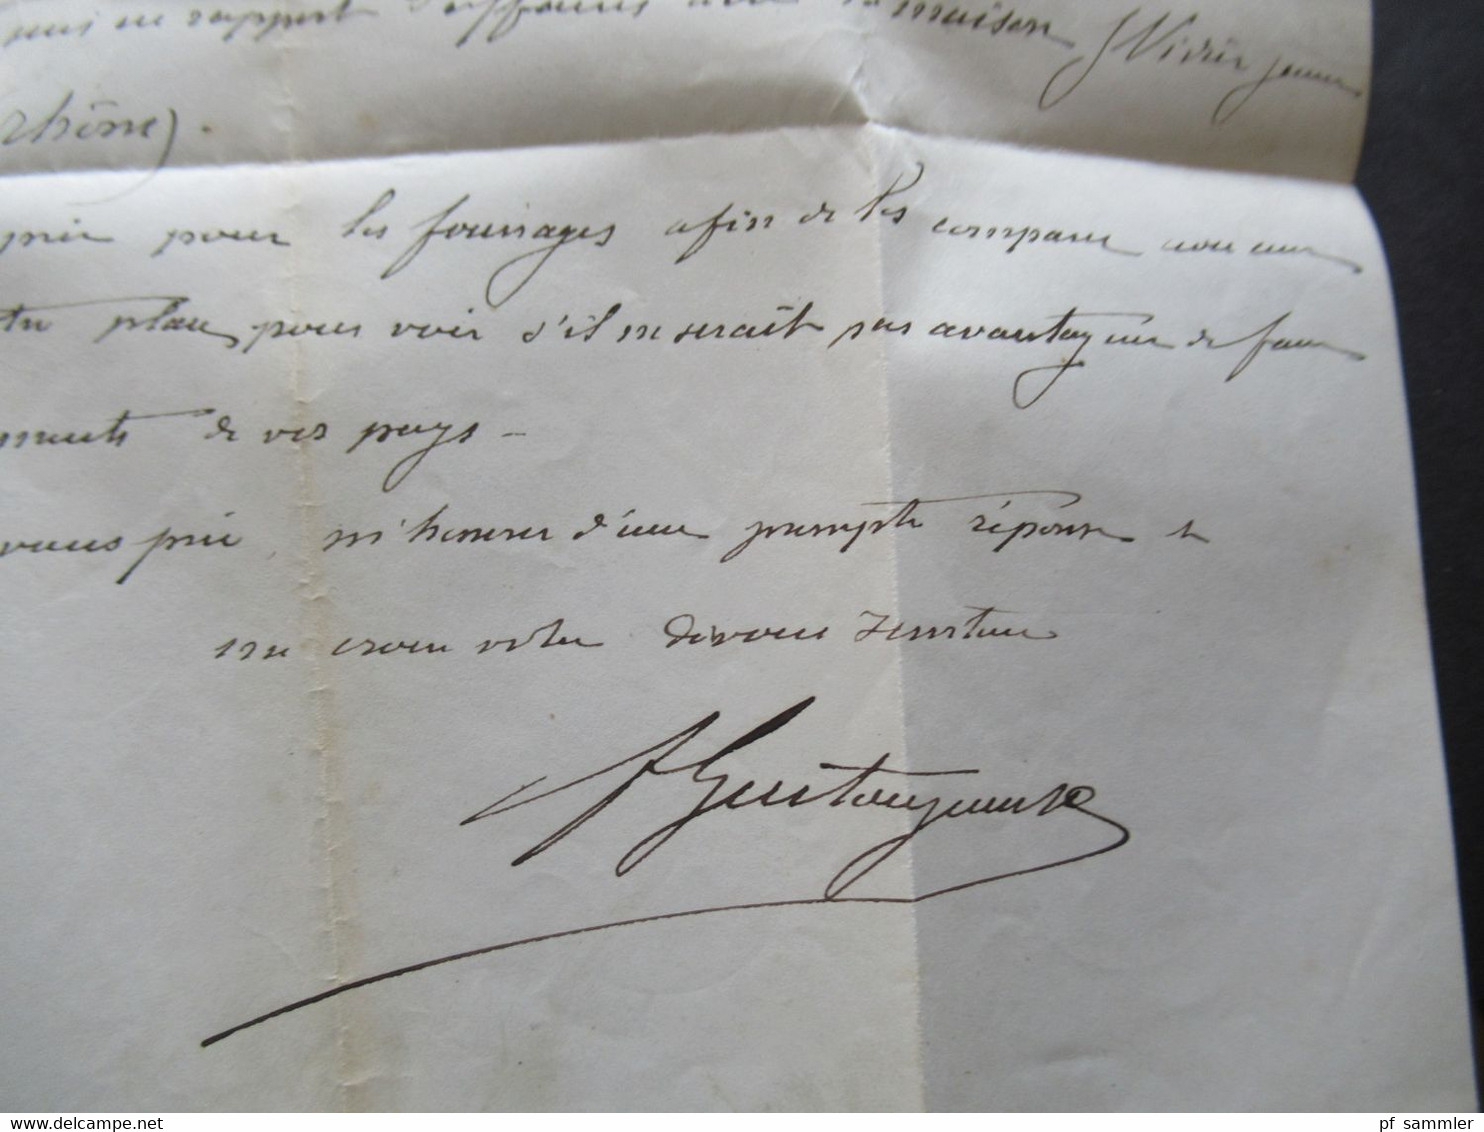 suis en rapport d'affaires avec la maison Vivier jeune
Rhône).
prix pour les fourrages afin de les comparer avec ceux
place pour voir s'il ne serait pas avantageux de faire
de vos pays -
vous prie, m'honorer d'une prompte réponse &
me croire votre dévoué Serviteur
pf sammler